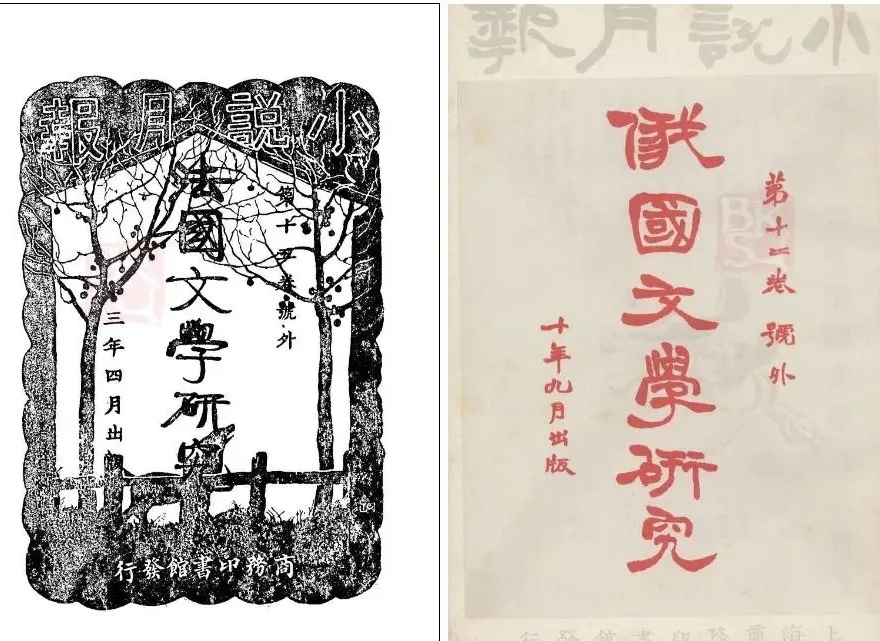 小說月報
第十五卷號外
法國文學研究
三年四月出
商務印書館發行
小說月報
第十二卷 號外
俄國文學研究
十年九月出版
上海商務印書館發行